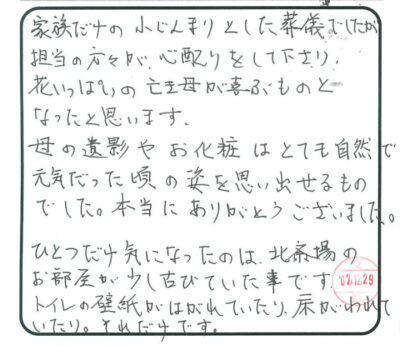 家族だけの小じんまりとした葬儀でしたが
担当の方々が、心配りをして下さり、
花いっぱいの亡き母が喜ぶものと
なったと思います。
母の遺影やお化粧はとても自然で
元気だった頃の姿を思い出せるもの
でした。本当にありがとうございました。
ひとつだけ気になったのは、北斎場の
お部屋が少し古びていた事です
トイレの壁紙がはがれていたり、床がわれて
いたり。それだけです。